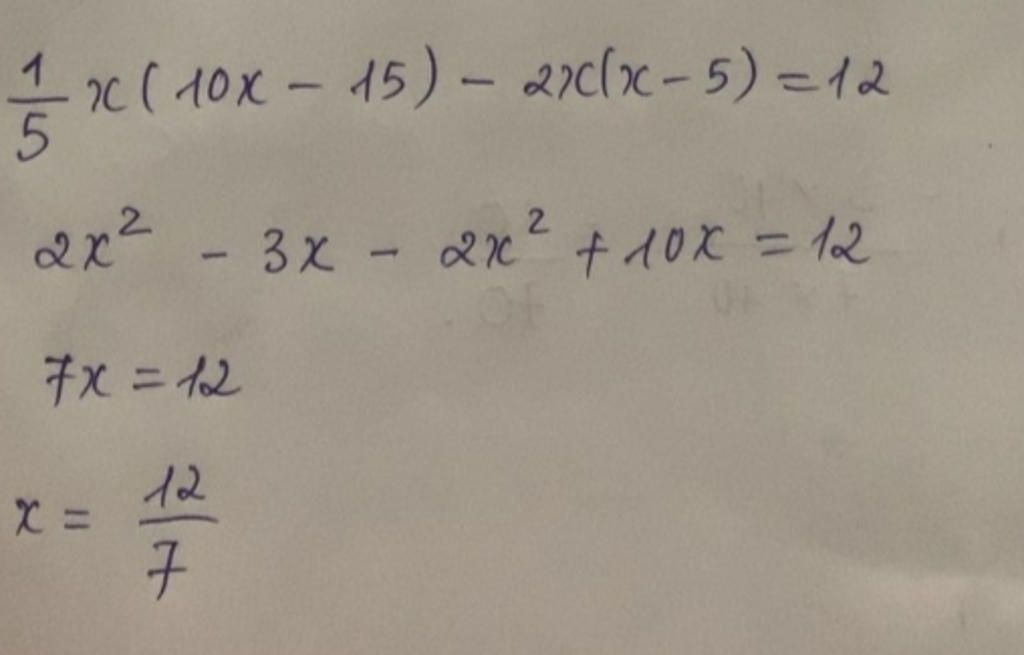 1/5 x(10x - 15) - 2x(x - 5) = 12
2x² - 3x - 2x² + 10x = 12
7x = 12
x = 12/7